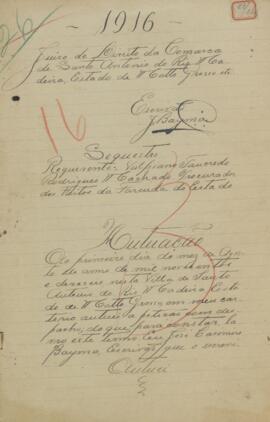 1916
Juizo de Direito da Comarca
de Santo Antonio do Rio Ma
deira, Estado de Matto Grosso
Escrivão
J. Bayma
16
Sequestro
Requerente: Vulpiano Tancredo
Rodrigues Machado, Procurador
dos Feitos da Fazenda do Estado
Autuação
primeiro dia do mez de
do anno de mil novecentos
e dezeseis nesta Villa de Santo
Antonio do Rio Madeira Estado
de Matto Grosso em meu car
torio autuei a petição com des
pacho, do que, para constar la
vro este termo. Eu José Casemiro
Bayma, Escrivão que o escrevi
Autuei